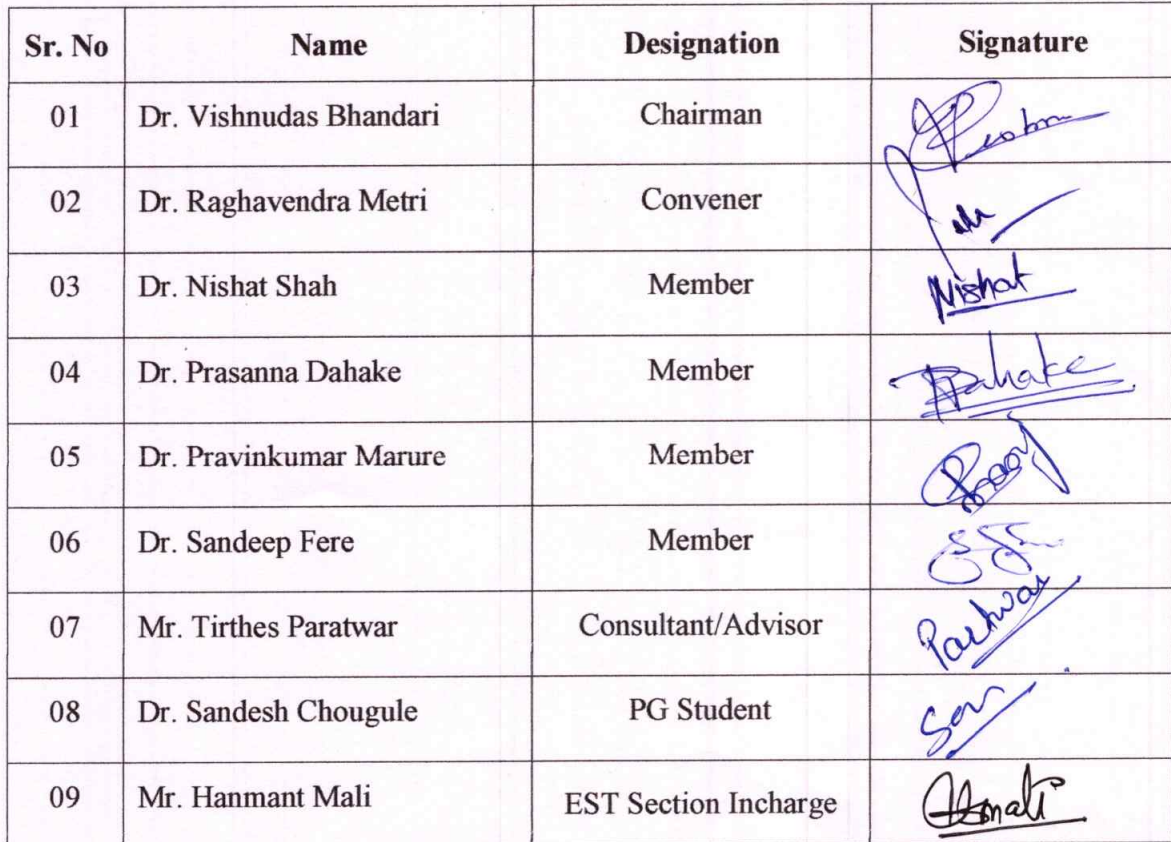 Sr. No Name Designation Signature
01 Dr. Vishnudas Bhandari Chairman
02 Dr. Raghavendra Metri Convener
03 Dr. Nishat Shah Member Nishat
04 Dr. Prasanna Dahake Member Dahake
05 Dr. Pravinkumar Marure Member
06 Dr. Sandeep Fere Member
07 Mr. Tirthes Paratwar Consultant/Advisor
08 Dr. Sandesh Chougule PG Student
09 Mr. Hanmant Mali EST Section Incharge